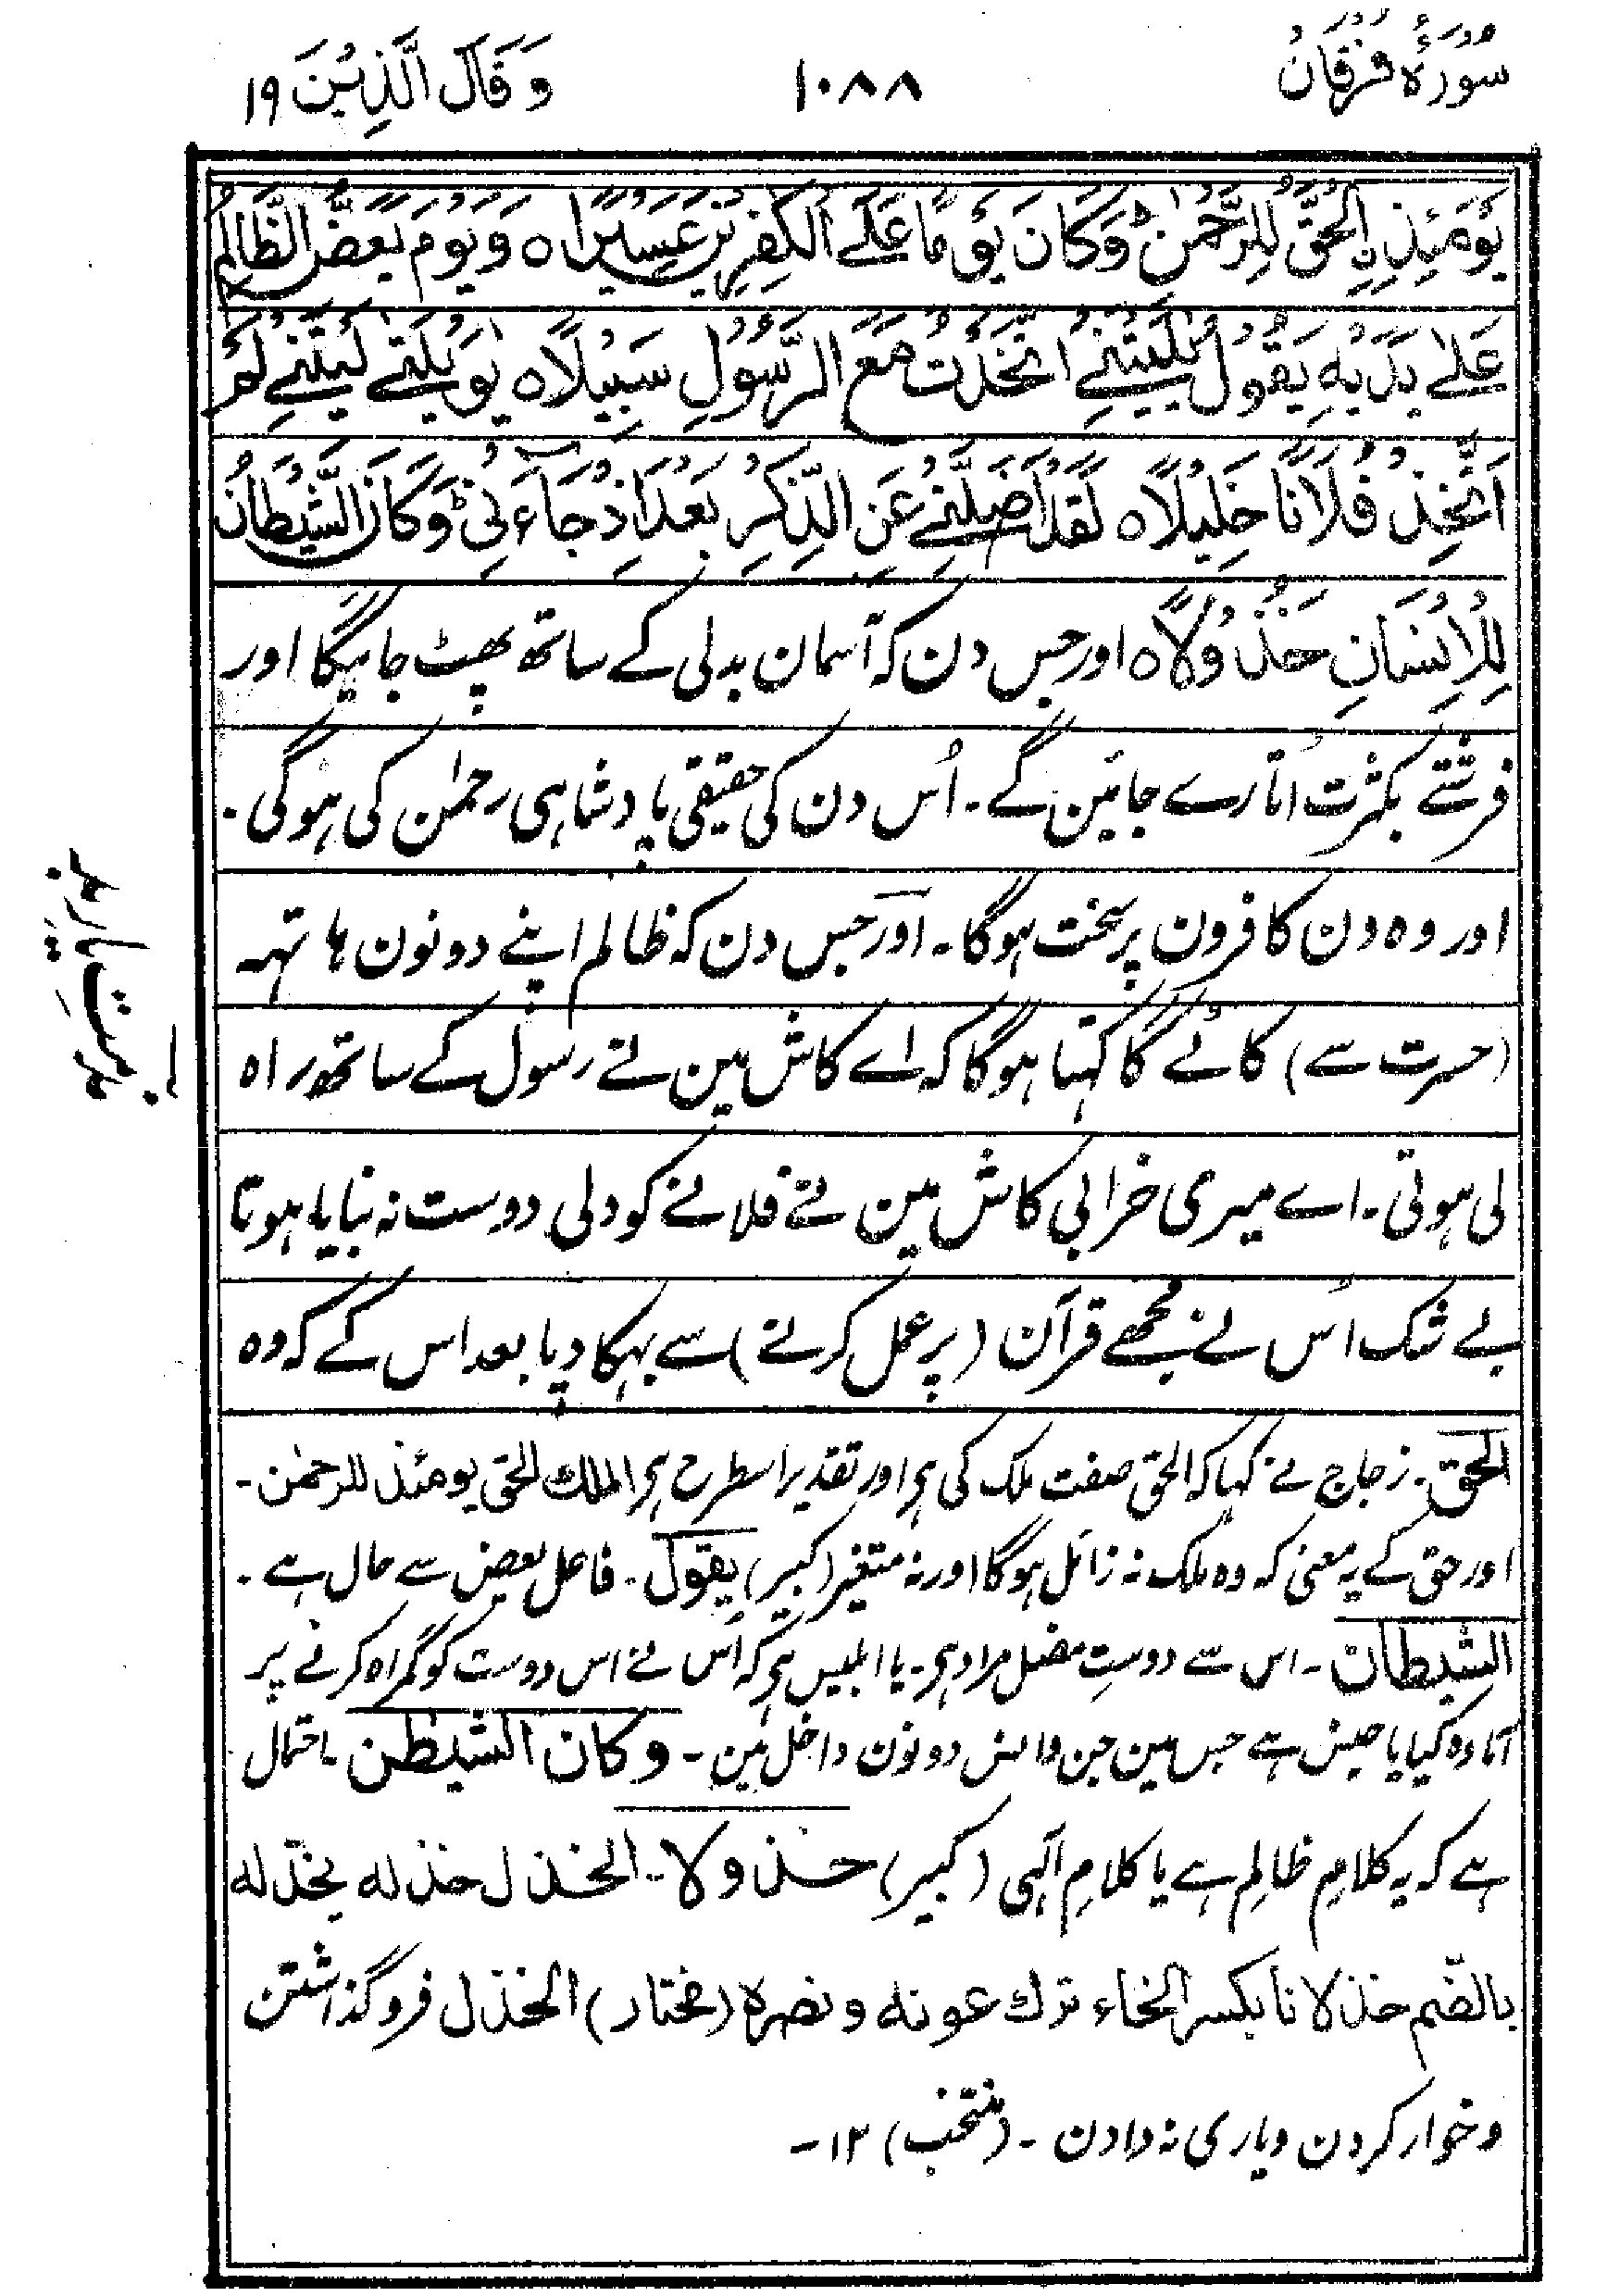 سُوْرَۂ فُرْقَانْ
۱۰۸۸
وَقَالَ الَّذِیْنَ ۱۹
یَوْمَئِذِ ِۨالْحَقُّ لِلرَّحْمٰنِ ؕ وَکَانَ یَوْمًا عَلَے الْکٰفِرِیْنَ عَسِیْرًا ہ وَیَوْمَ یَعَضُّ الظَّالِمُ
عَلٰے یَدَیْهِ یَقُوْلُ یٰلَیْتَنِے اتَّخَذْتُ مَعَ الرَّسُوْلِ سَبِیْلًا ہ یٰوَیْلَتٰے لَیْتَنِے لَمْ
اَتَّخِذْ فُلَانًا خَلِیْلًا ہ لَقَدْ اَضَلَّنِے عَنِ الذِّکْرِ بَعْدَ اِذْ جَآءَنِیْ ؕ وَکَانَ الشَّیْطَانُ
لِلْاِنْسَانِ خَذُوْلًا ہ اور جس دن کہ آسمان بدلی کے ساتھ پھٹ جائیگا اور
فرشتے بکثرت اُتارے جائیں گے ۔ اُس دن کی حقیقی پادشاہی رحمٰن کی ہوگی ۔
اور وہ دن کافرون پر سخت ہوگا ۔ اور جس دن کہ ظالم اپنے دونون ہاتہہ
(حسرت سے) کاٹے گا کہتا ہوگا کہ اے کاش مین نے رسول کے ساتھ راہ
لی ہوتی ۔ اے میری خرابی کاش مین نے فلانے کو دلی دوست نہ بنایا ہوتا
بے شک اُس نے مجھے قرآن (پر عمل کرنے) سے بہکا دیا بعد اس کے کہ وہ
الحق ۔ زجاج نے کہا کہ الحق صفت ملک کی ہی اور تقدیر اسطرح ہی الملك الحق یومئذ للرحمٰن ۔
اور حق کے یہ معنی کہ وہ ملک نہ زائل ہوگا اور نہ متغیر (کبیر) یقول ۔ فاعل یعض سے حال ہے ۔
الشیطان ۔ اس سے دوستِ مضل مراد ہی ۔ یا ابلیس ہی کہ اُس نے اس دوست کو گمراہ کرنے پر
آمادہ کیا یا جنس ہے جس مین جن وانس دونون داخل ہین ۔ وکان الشیطٰن ۔ احتمال
ہے کہ یہ کلامِ ظالِم ہے یا کلامِ الٰہی (کبیر) خذولا ۔ الخذل خذله یخذله
بالضّم خذلانا بکسر الخاء ترك عونه ونصره (مختار) الخذل فروگذاشتن
وخوار کردن ویاری نہ دادن ۔ (منتخب) ۱۲ ۔